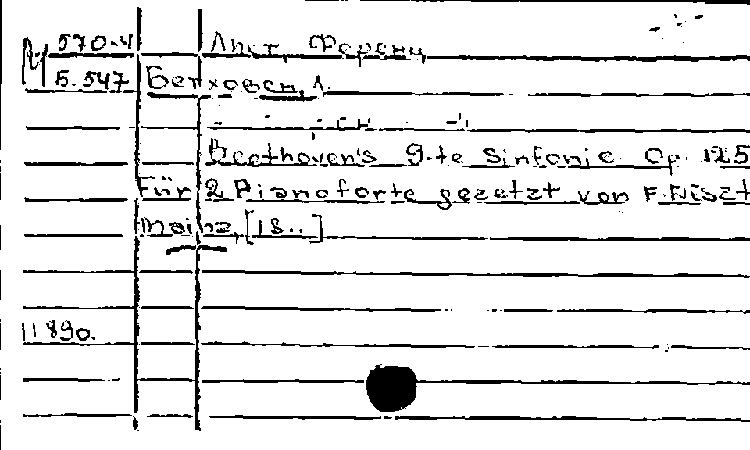 570-4 Лист, Ференц
Б.547 Бетховен, Л.
Beethoven's 9-te Sinfonie Op. 125
Für 2 Pianoforte gezetzt von F. Liszt
Mainz, [18..]
11890.